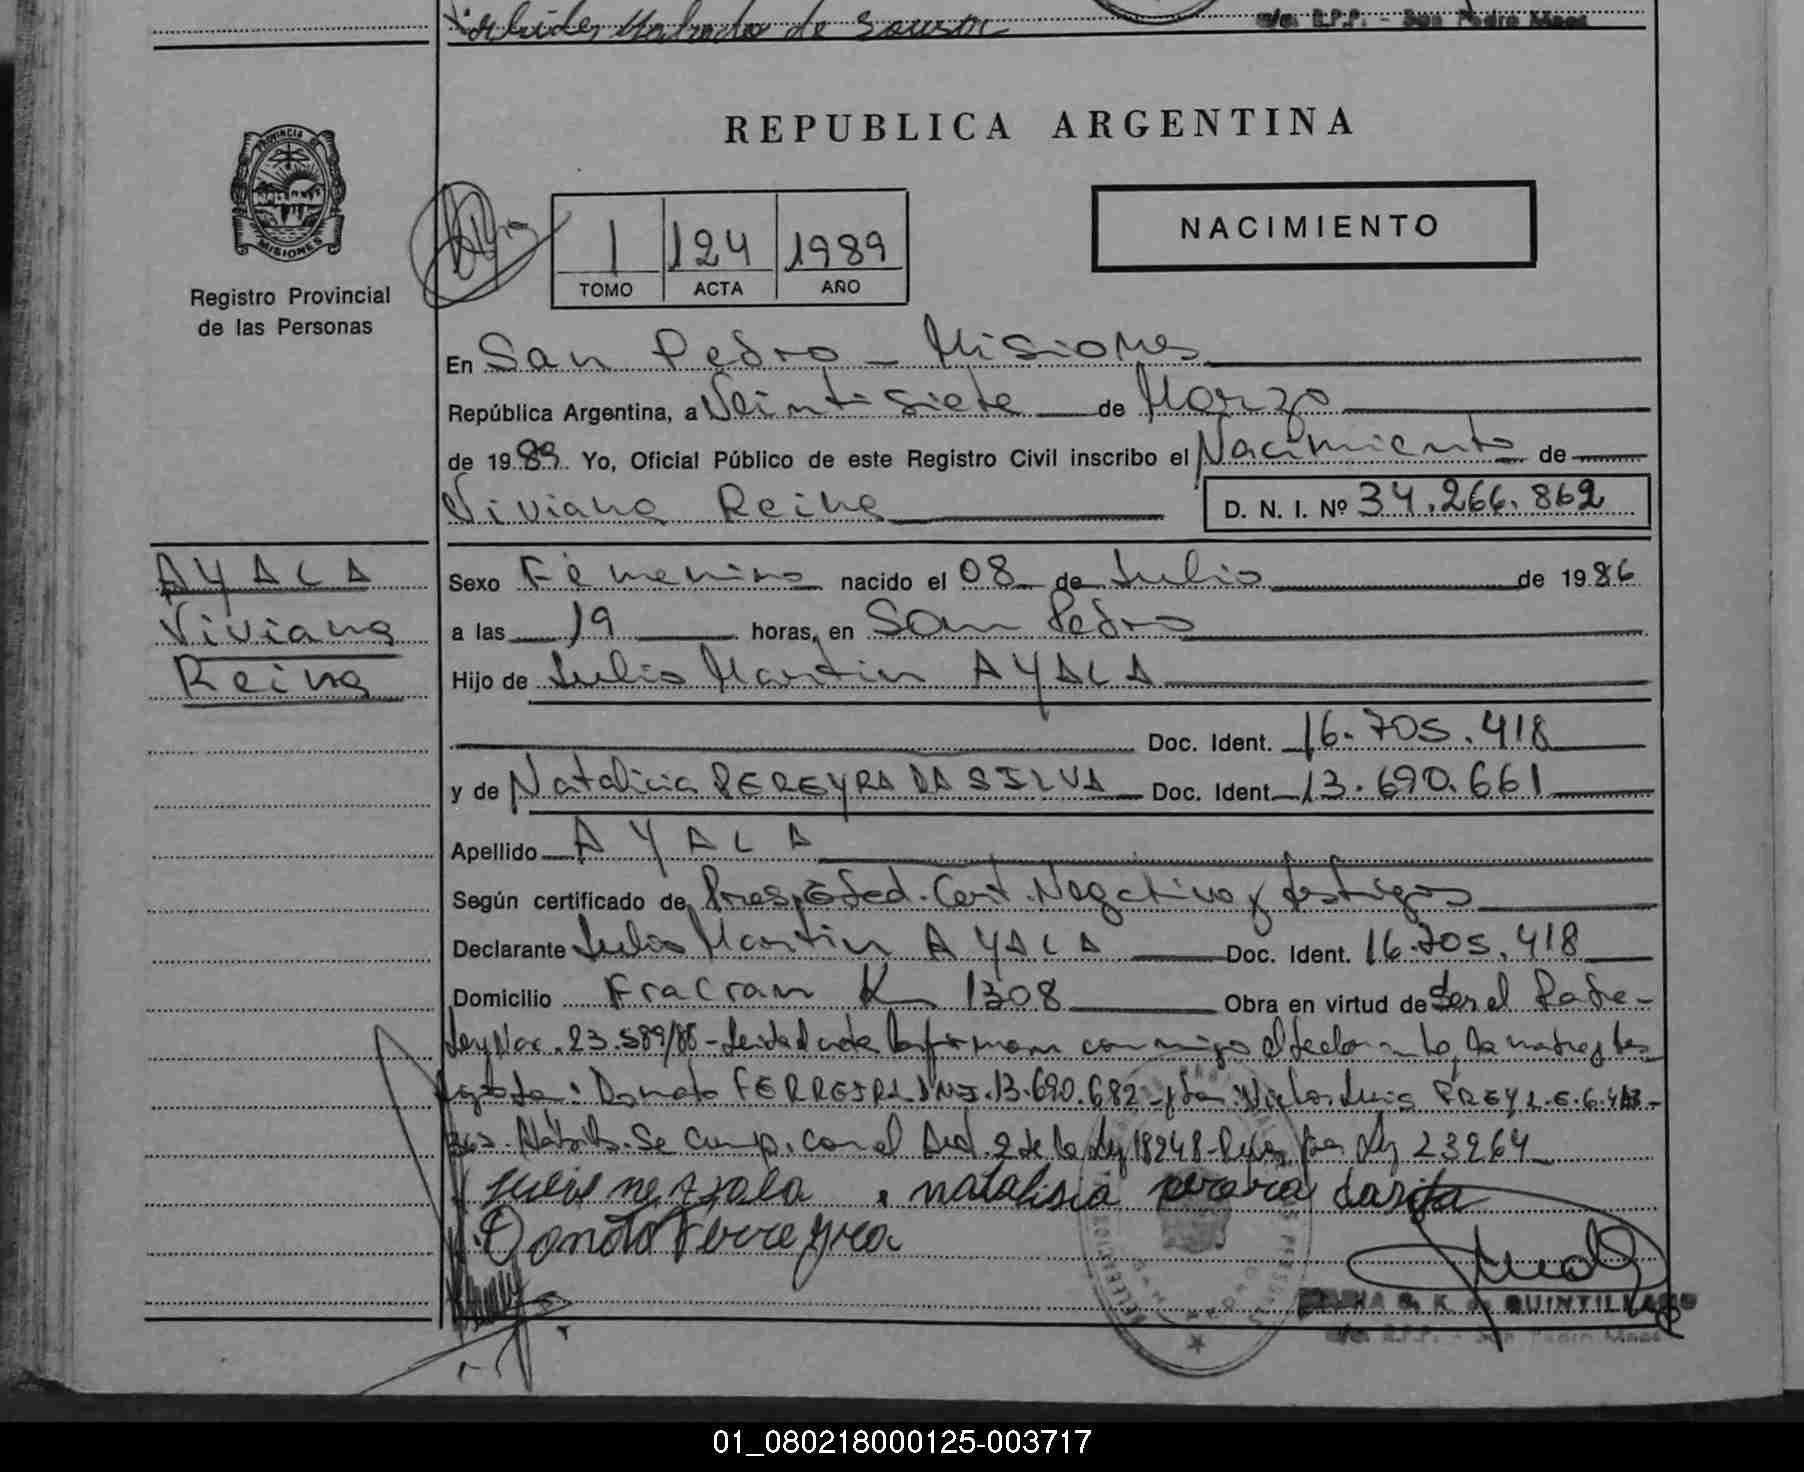 c/o. R.P.P. - San Pedro Mnes
REPUBLICA ARGENTINA
PROVINCIA DE
MISIONES
Registro Provincial
de las Personas
1 124 1989
TOMO ACTA AÑO
NACIMIENTO
En San Pedro - Misiones
República Argentina, a Veintisiete de Marzo
de 1989 Yo, Oficial Público de este Registro Civil inscribo el Nacimiento de
Viviana Reina
D. N. I. Nº 34.266.862
AYALA
Viviana
Reina
Sexo Femenino nacido el 08 de Julio de 1986
a las 19 horas, en San Pedro
Hijo de Julio Martin AYALA
Doc. Ident. 16.705.418
y de Natalicia PEREYRA DA SILVA Doc. Ident 13.690.661
Apellido AYALA
Según certificado de Cert. Negativo y testigos
Declarante Julio Martin AYALA Doc. Ident. 16.705.418
Domicilio Fracran K 1308 Obra en virtud de Ser el Padre-
Ley Nac. 23.589/88 - Leida el acta la firman conmigo el declarante, la madre y tes
tigos: Donato FERREIRA DNI. 13.690.682 - y Luis FREY L.E. 6.
Se cump. con el Art. 2 de la Ley 18248 - por Ley 23264
natalisia pereira dasilva
Donato Ferreyra
QUINTILLANO
c/o. R.P.P. - San Pedro Mnes
01_080218000125-003717